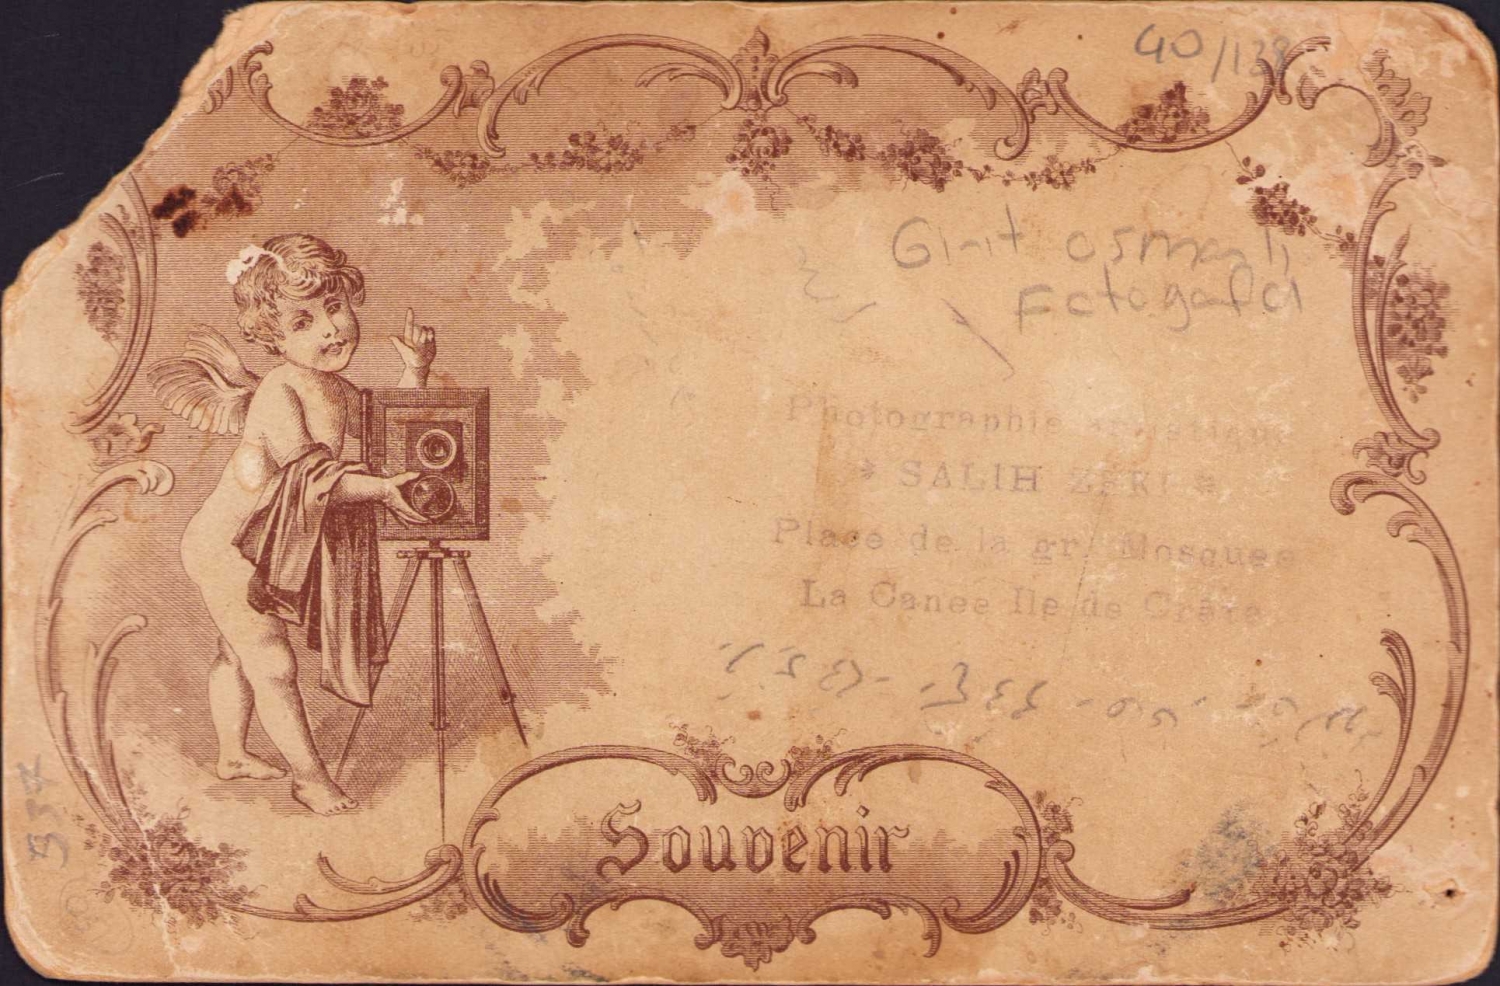 40/138
Girit osmanlı
Fotografcı
Photographie artistique
SALIH ZEKI
Place de la gr. Mosquee
La Canee Ile de Crète
357
Souvenir